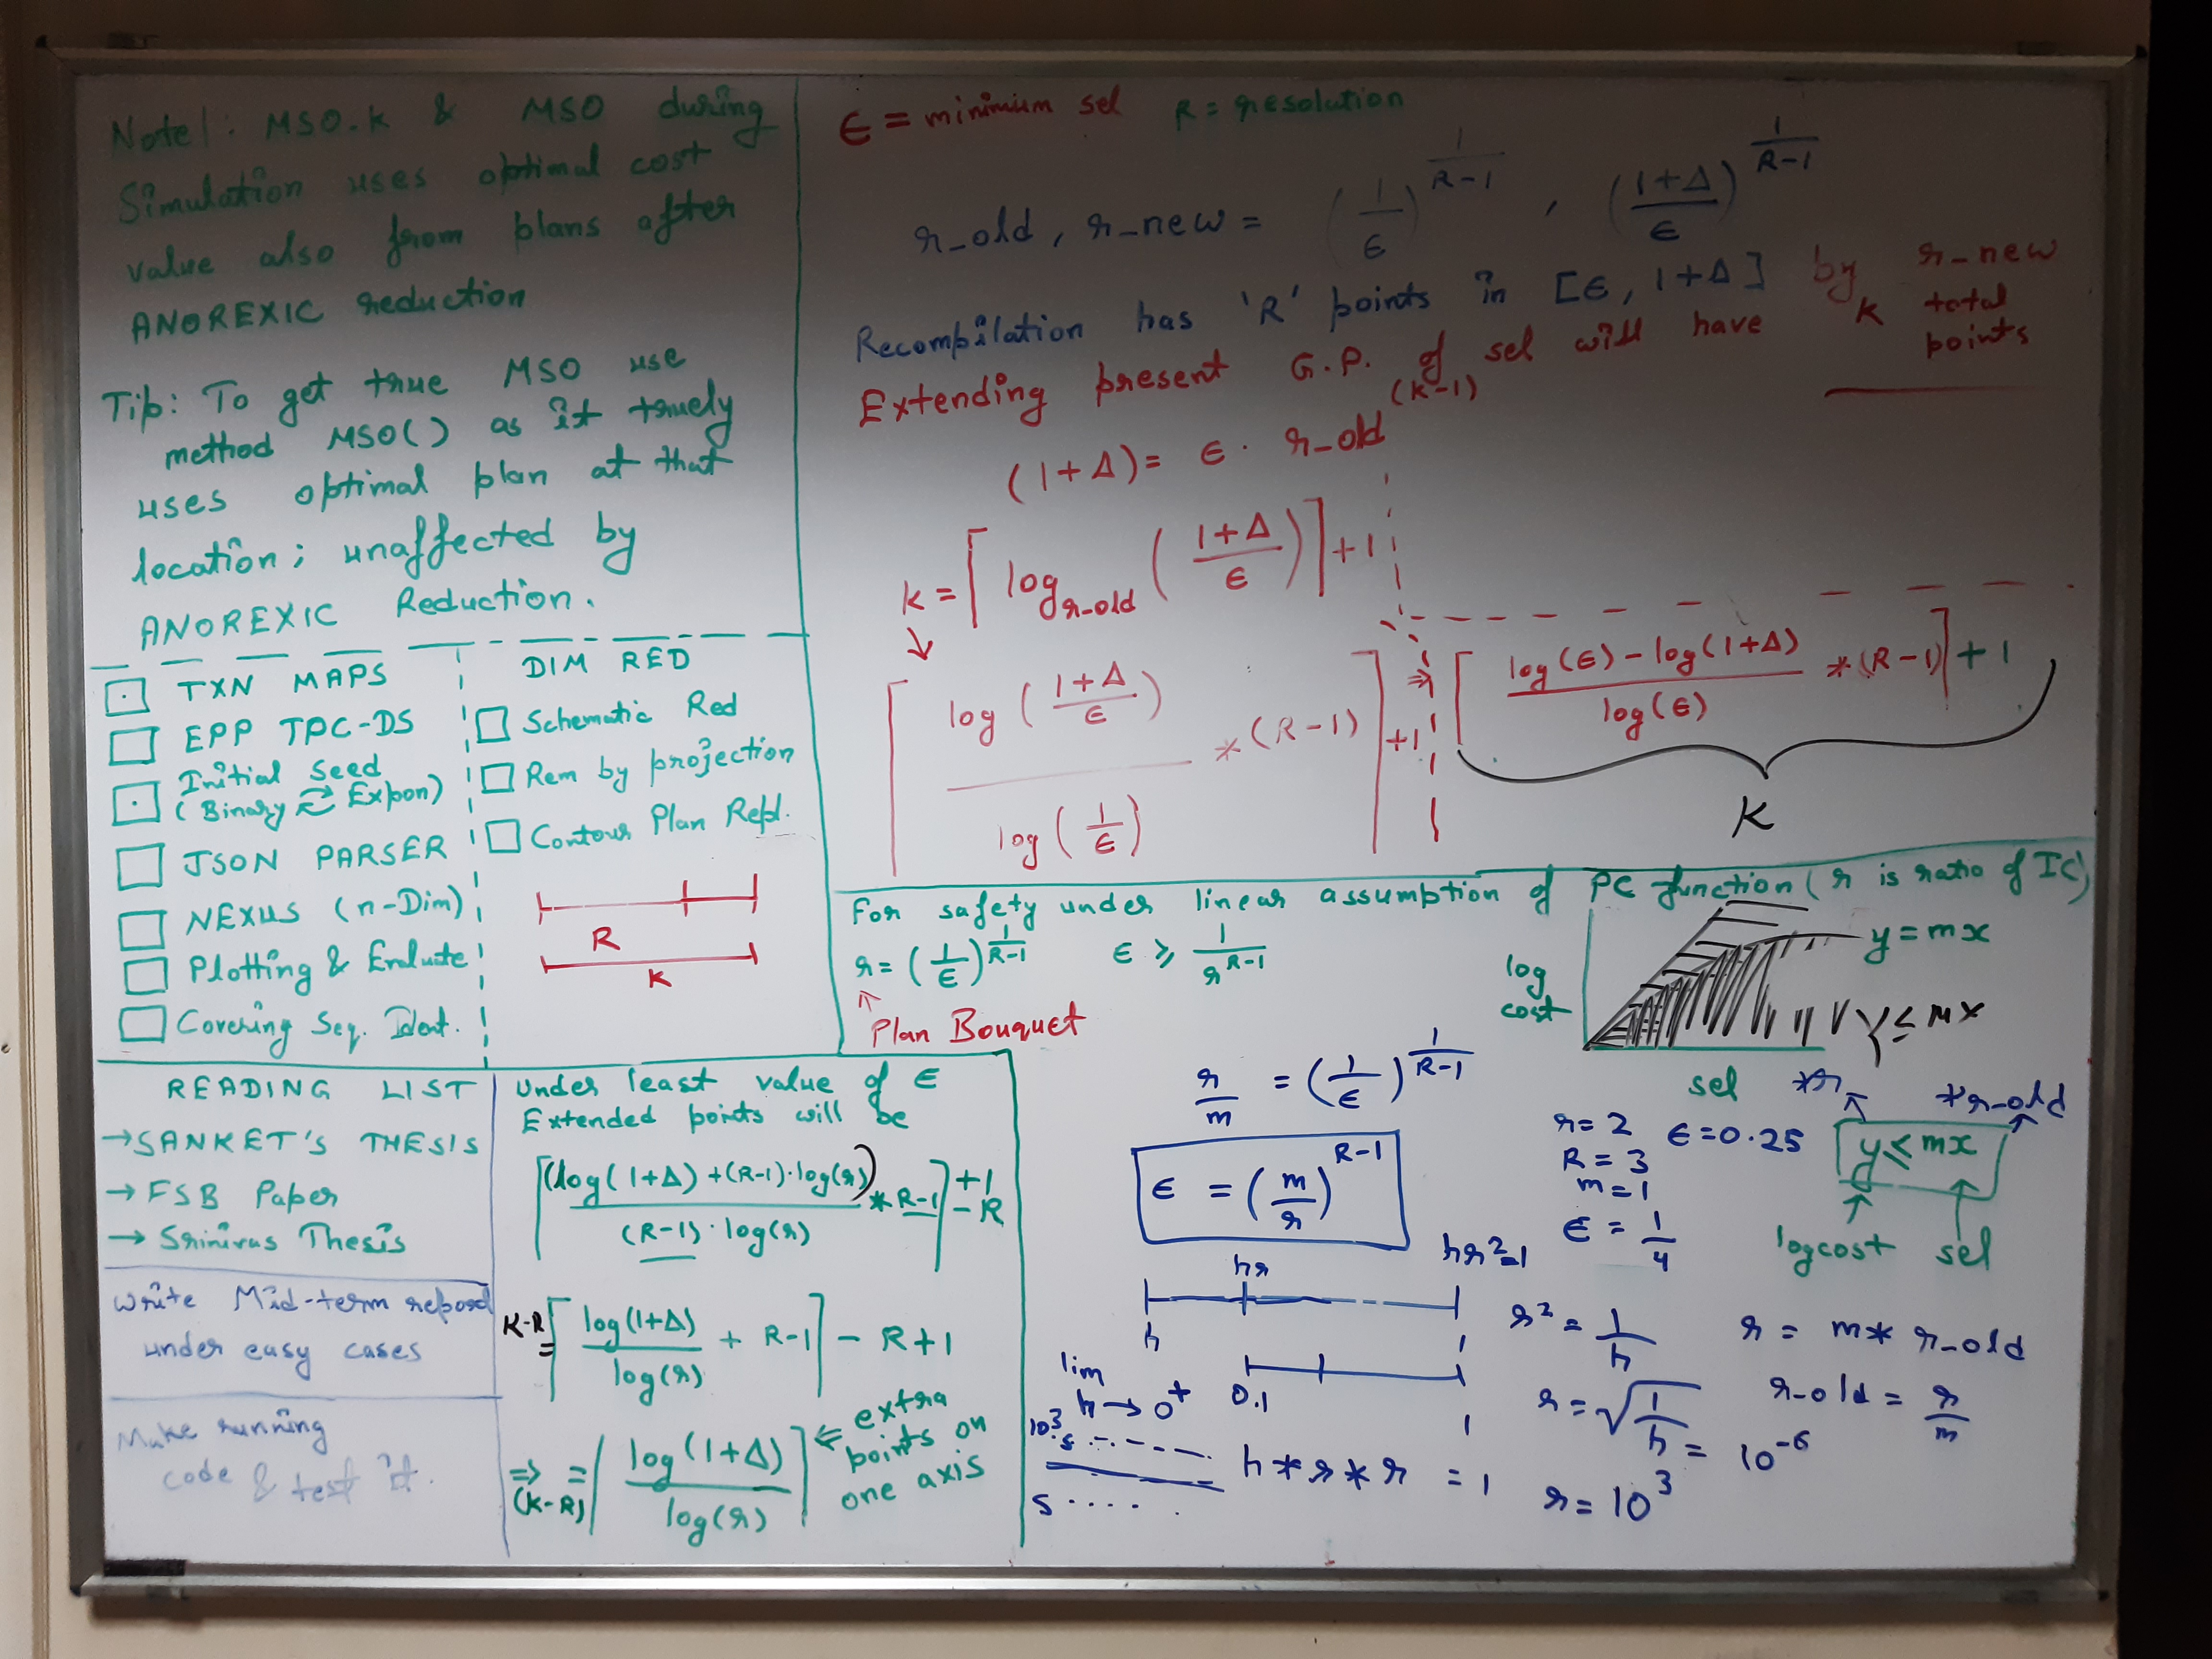 Note!: MSO.k & MSO during
Simulation uses optimal cost
value also from plans after
ANOREXIC reduction
Tip: To get true MSO use
method MSO() as it truely
uses optimal plan at that
location; unaffected by
ANOREXIC Reduction.
TXN MAPS
EPP TPC-DS
Initial Seed
(Binary ⇄ Expon)
JSON PARSER
NEXUS (n-Dim)
Plotting & Evaluate
Covering Seq. Ident.
DIM RED
Schematic Red
Rem by projection
Contour Plan Repl.
R
K
READING LIST
→SANKET'S THESIS
→ FSB Paper
→ Srinivas Thesis
Write Mid-term report
under easy cases
Make running
code & test it.
ϵ = minimum sel R = resolution
r_old, r_new = (1/ϵ)^(1/(R-1)) , ((1+Δ)/ϵ)^(1/(R-1))
Recompilation has 'R' points in [ϵ, 1+Δ] by r_new
Extending present G.P. of sel will have K total points
(1+Δ) = ϵ . r_old^(K-1)
K = ⌈log_r_old ((1+Δ)/ϵ)⌉ + 1
↓
⌈log((1+Δ)/ϵ) / log(1/ϵ) * (R-1)⌉ + 1
⇒ ⌈(log(ϵ) - log(1+Δ)) / log(ϵ) * (R-1)⌉ + 1
K
For safety under linear assumption of PC function (r is ratio of IC)
r = (1/ϵ)^(1/(R-1)) ϵ ⩾ 1/r^(R-1)
Plan Bouquet
log
cost
sel
y = mx
Y ≤ mx
Under least value of ϵ
Extended points will be
⌈(log(1+Δ) + (R-1).log(r)) / ((R-1).log(r)) * R-1⌉ + 1 - R
K-R = ⌈log(1+Δ)/log(r) + R-1⌉ - R + 1
⇒ (K-R) = ⌈log(1+Δ)/log(r)⌉ ⇐ extra
points on
one axis
r/m = (1/ϵ)^(1/(R-1))
ϵ = (m/r)^(R-1)
r = 2 ϵ = 0.25
R = 3
m = 1
ϵ = 1/4
*r *r_old
y ≤ mx
logcost sel
h hr hr² = 1
1
0.1 1
lim
h → 0⁺
10³
s
s
h * r * r = 1
r² = 1/h
r = √(1/h) = 10⁻⁶
r = 10³
r = m * r_old
r_old = r/m